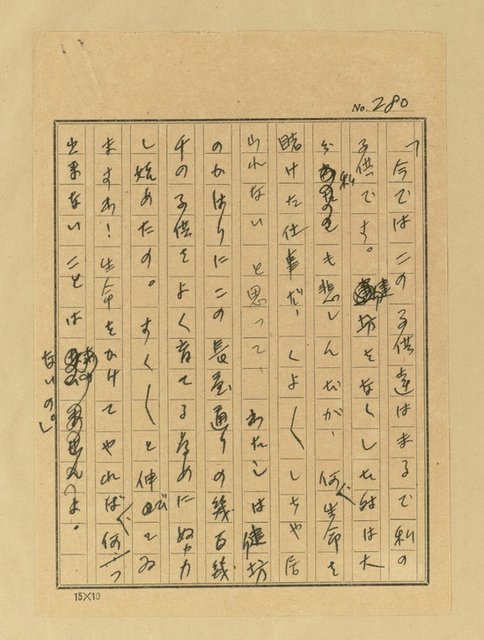 No. 280
「今ではこの子供達はまるで私の
子供です。健坊をなくした時は大
私も悲しんだが、何生命を
賭けた仕事だ、くよ〳〵しちや居
られないと思って、わたしは健坊
のかはりにこの長屋通りの幾百幾
千の子供をよく育てるために努力
し始めたの。すく〳〵と伸びてゐ
ますわ!生命をかけてやれば何一つ
出来ないことは
ないの。」
15×10